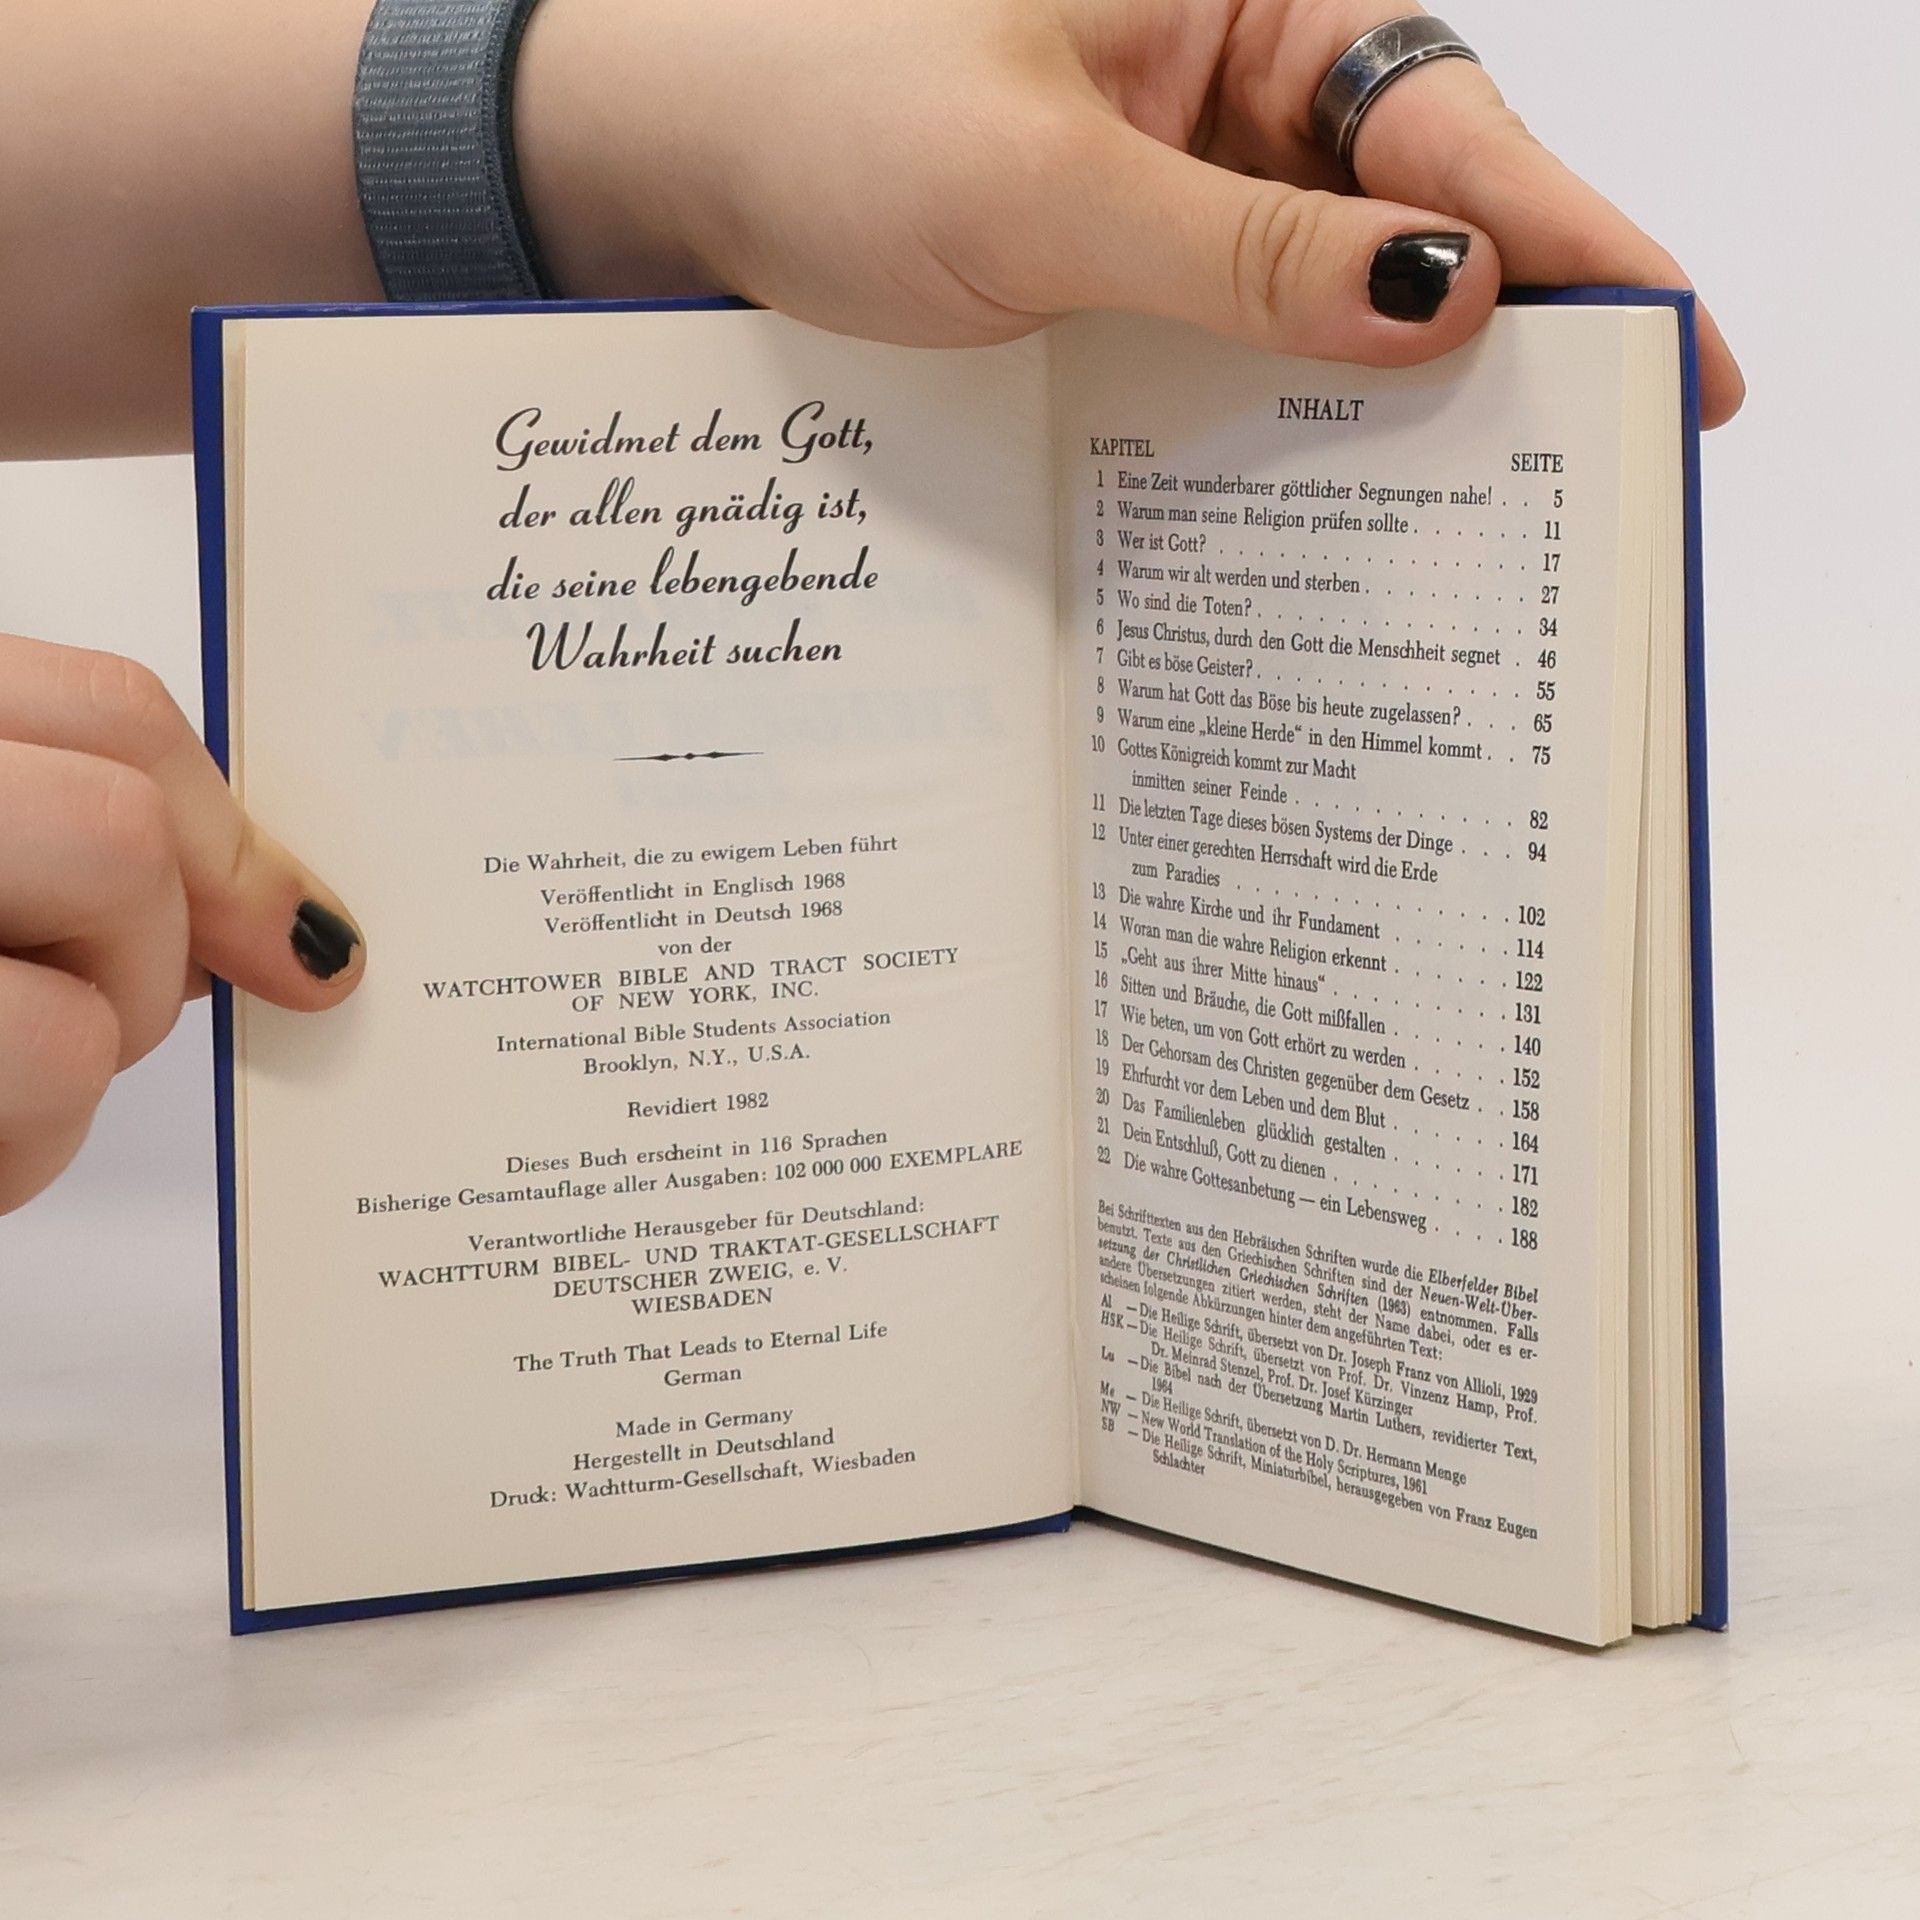 Gewidmet dem Gott,
der allen gnädig ist,
die seine lebengebende
Wahrheit suchen
Die Wahrheit, die zu ewigem Leben führt
Veröffentlicht in Englisch 1968
Veröffentlicht in Deutsch 1968
von der
WATCHTOWER BIBLE AND TRACT SOCIETY
OF NEW YORK, INC.
International Bible Students Association
Brooklyn, N.Y., U.S.A.
Revidiert 1982
Dieses Buch erscheint in 116 Sprachen
Bisherige Gesamtauflage aller Ausgaben: 102 000 000 EXEMPLARE
Verantwortliche Herausgeber für Deutschland:
WACHTTURM BIBEL- UND TRAKTAT-GESELLSCHAFT
DEUTSCHER ZWEIG, e. V.
WIESBADEN
The Truth That Leads to Eternal Life
German
Made in Germany
Hergestellt in Deutschland
Druck: Wachtturm-Gesellschaft, Wiesbaden
INHALT
KAPITEL SEITE
1 Eine Zeit wunderbarer göttlicher Segnungen nahe! . . 5
2 Warum man seine Religion prüfen sollte . . . . . . 11
3 Wer ist Gott? . . . . . . . . . . . . . 17
4 Warum wir alt werden und sterben . . . . . . . . 27
5 Wo sind die Toten? . . . . . . . . . . . . 34
6 Jesus Christus, durch den Gott die Menschheit segnet . 46
7 Gibt es böse Geister? . . . . . . . . . . . . 55
8 Warum hat Gott das Böse bis heute zugelassen? . . . 65
9 Warum eine „kleine Herde“ in den Himmel kommt . . 75
10 Gottes Königreich kommt zur Macht
inmitten seiner Feinde . . . . . . . . . . 82
11 Die letzten Tage dieses bösen Systems der Dinge . . . 94
12 Unter einer gerechten Herrschaft wird die Erde
zum Paradies . . . . . . . . . . . . 102
13 Die wahre Kirche und ihr Fundament . . . . . . 114
14 Woran man die wahre Religion erkennt . . . . . . 122
15 „Geht aus ihrer Mitte hinaus“ . . . . . . . . . 131
16 Sitten und Bräuche, die Gott mißfallen . . . . . . 140
17 Wie beten, um von Gott erhört zu werden . . . . . 152
18 Der Gehorsam des Christen gegenüber dem Gesetz . . 158
19 Ehrfurcht vor dem Leben und dem Blut . . . . . . 164
20 Das Familienleben glücklich gestalten . . . . . . 171
21 Dein Entschluß, Gott zu dienen . . . . . . . . 182
22 Die wahre Gottesanbetung — ein Lebensweg . . . . 188
Bei Schrifttexten aus den Hebräischen Schriften wurde die Elberfelder Bibel
benutzt. Texte aus den Griechischen Schriften sind der Neuen-Welt-Über-
setzung der Christlichen Griechischen Schriften (1963) entnommen. Falls
andere Übersetzungen zitiert werden, steht der Name dabei, oder es er-
scheinen folgende Abkürzungen hinter dem angeführten Text:
Al — Die Heilige Schrift, übersetzt von Dr. Joseph Franz von Allioli, 1929
HSK — Die Heilige Schrift, übersetzt von Prof. Dr. Vinzenz Hamp, Prof.
Dr. Meinrad Stenzel, Prof. Dr. Josef Kürzinger
Lu — Die Bibel nach der Übersetzung Martin Luthers, revidierter Text,
1964
Me — Die Heilige Schrift, übersetzt von D. Dr. Hermann Menge
NW — New World Translation of the Holy Scriptures, 1961
SB — Die Heilige Schrift, Miniaturbibel, herausgegeben von Franz Eugen
Schlachter